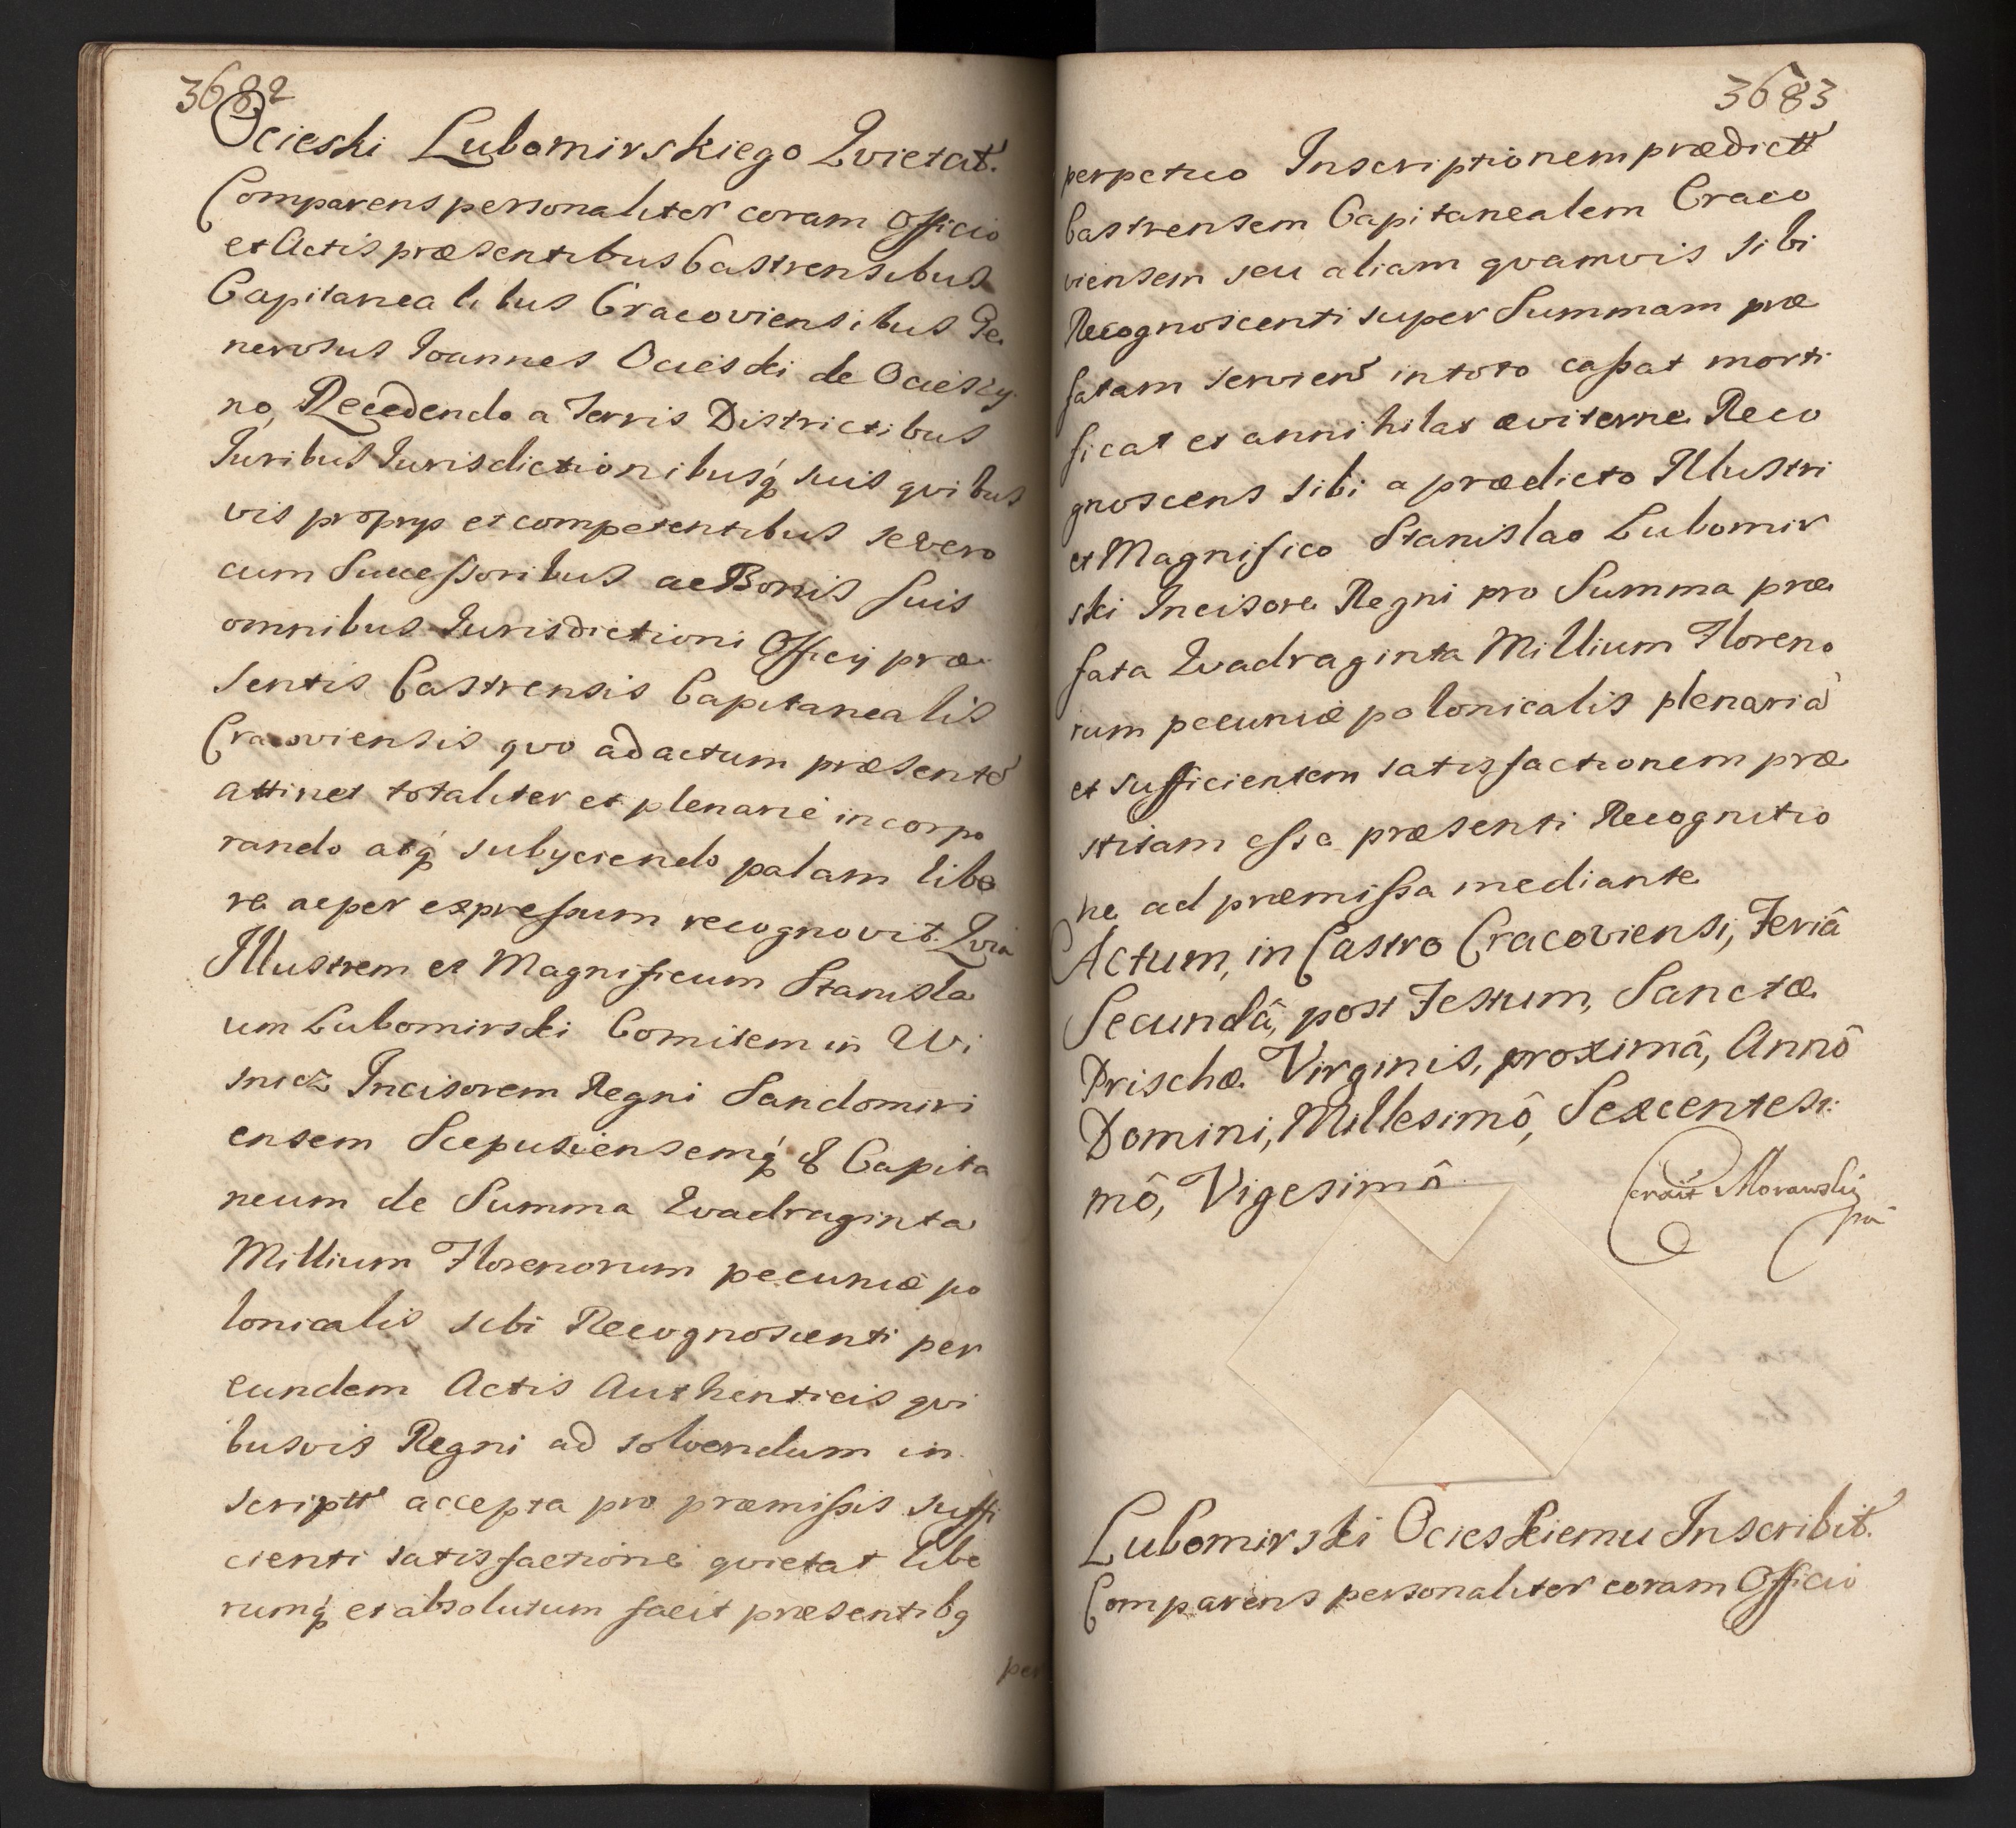 3682
Ocieski Lubomirskiego Qvietat.
Comparens personaliter coram Officio
et Actis præsentibus Castrensibus
Capitanealibus Cracoviensibus Ge
nerosus Joannes Ocieski de Ocieszy
no, Recedendo a Terris Districtibus
Juribus Jurisdictionibusq́ suis qvibus
vis proprys et competentibus se vero
cum Successoribus ac Bonis suis
omnibus Jurisdictioni Officÿ præ
sentis Castrensis Capitanealis
Cracoviensis qvo ad actum præsentē
attinet totaliter et plenariè incorpo
rando atq́ subyciendo palam libe
re ac per expressum recognovit. Qvia
Illustrem et Magnificum Stanisla
um Lubomirski Comitem in Wi
snicz Incisorem Regni Sandomiri
ensem Scepusiensemq́ & Capita
neum de Summa Qvadraginta
Millium Florenorum pecuniæ po
lonicalis sibi Recognoscenti per
eundem Actis Authenticis qvi
busvis Regni ad solvendum in
scriptt accepta pro præmissis suffi
cienti satisfactione qvietat libe
rumq́ et absolutum facit præsentibg
per
3683
perpetuo Inscriptionem prædictt
Castrensem Capitanealem Craco
viensem seu aliam qvamvis sibi
Recognoscenti super Summam præ
fatam servien̄ in toto cassat morti
ficat et annihilat æviterne Reco
gnoscens sibi a prædicto Illustri
et Magnifico Stanislao Lubomir
ski Incisore Regni pro Summa præ
fata Qvadraginta Millium Floreno
rum pecuniæ polonicalis plenariā
et sufficientem satisfactionem præ
stitam esse præsenti Recognitio
ne ad præmissa mediante
Actum, in Castro Cracoviensi, Feriâ
Secundâ, post Festum, Sanctæ
Prischæ Virginis, proximâ, Annô
Domini, Millesimô, Sexcentesi:
mô, Vigesimô
Morawski
Lubomirski Ocieskiemu Inscribit.
Comparens personaliter coram Officio